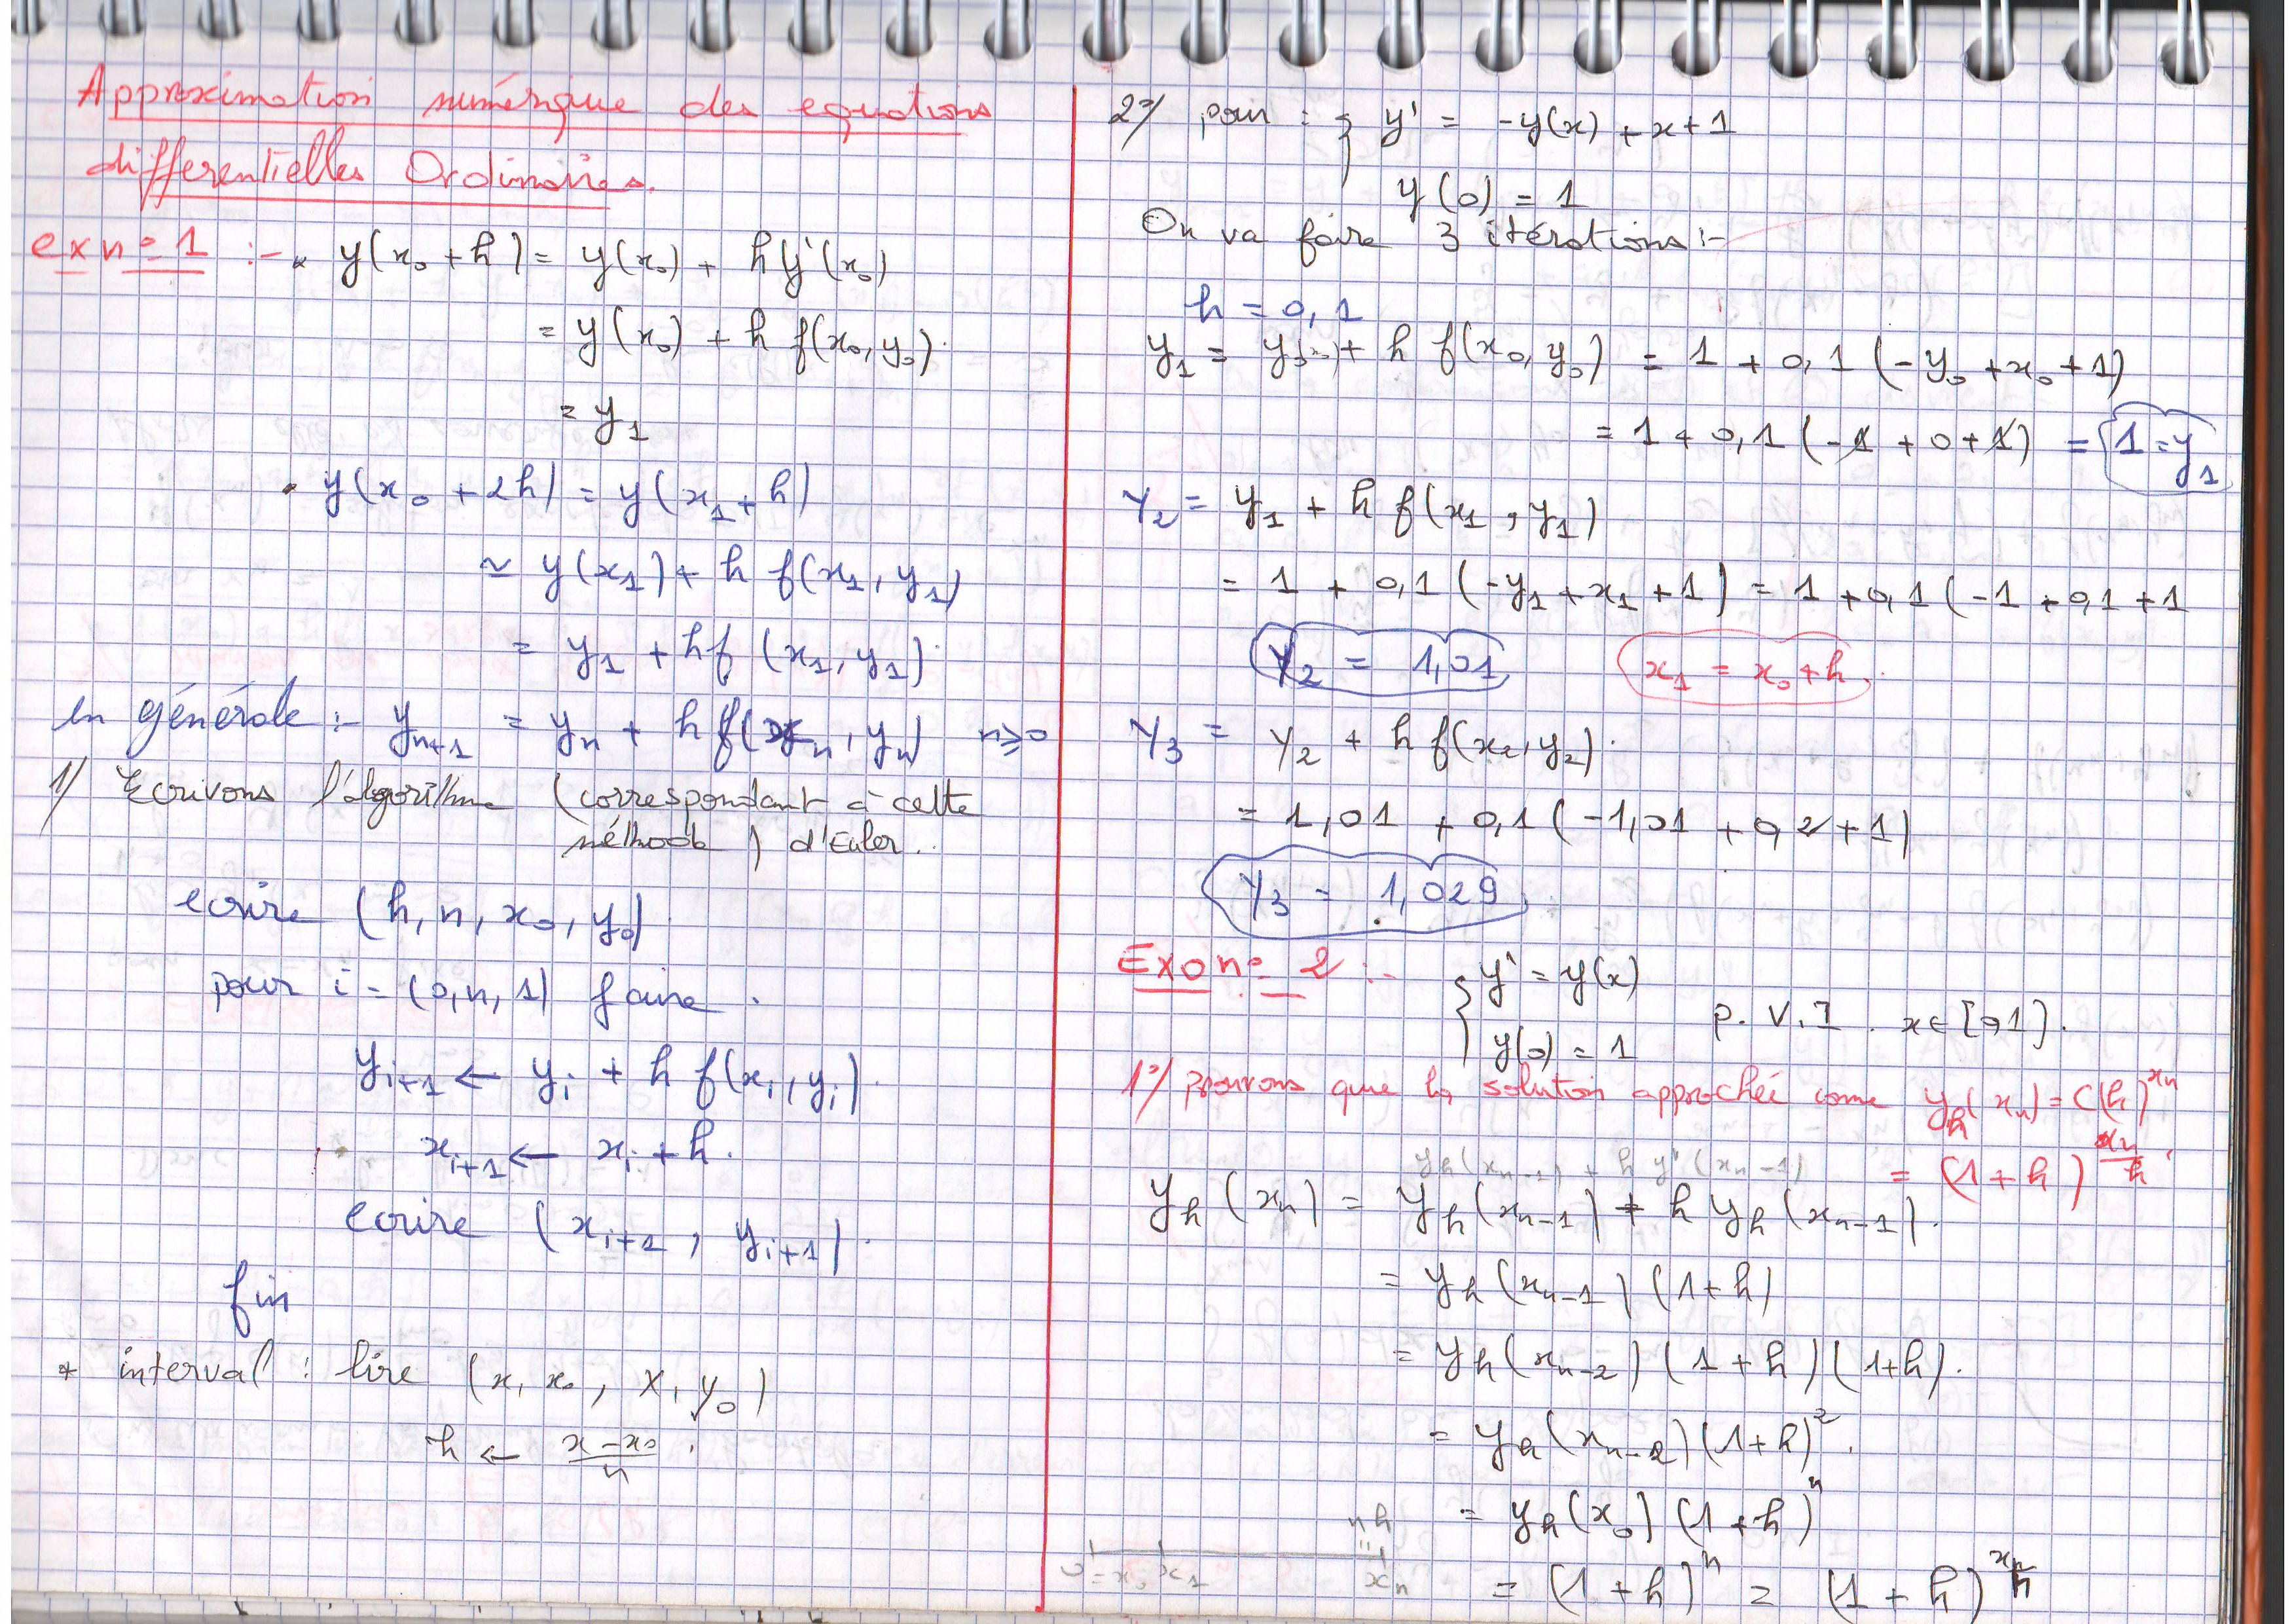 Approximation numérique des equations
differentielles Ordinaires.
exn=1 :- * y(x₀+h) = y(x₀) + h y'(x₀)
= y(x₀) + h f(x₀, y₀).
= y₁
• y(x₀ + 2h) = y(x₁+h)
≃ y(x₁) + h f(x₁, y₁)
= y₁ + hf (x₁, y₁).
en générale :- yₙ₊₁ = yₙ + h f(xₙ, yₙ) n≥0
1/ Ecrivons l'algorithme (correspondant à cette
méthode) d'Euler..
ecrire (h, n, x₀, y₀)
pour i = (0, n, 1) faire .
yᵢ₊₁ ← yᵢ + h f(xᵢ, yᵢ).
xᵢ₊₁ ← xᵢ + h.
ecrire (xᵢ₊₁, yᵢ₊₁).
fin
* interval : lire (x, x₀, X, y₀)
h ← (x - x₀)/n .
2°/ pour : { y' = -y(x) + x + 1
y(0) = 1
On va faire 3 itérations :-
h = 0,1
y₁ = y₀ + h f(x₀, y₀) = 1 + 0,1 (-y₀ + x₀ + 1)
= 1 + 0,1 (-1 + 0 + 1) = 1 = y₁
Y₂ = y₁ + h f(x₁, y₁)
= 1 + 0,1 (-y₁ + x₁ + 1) = 1 + 0,1 (-1 + 0,1 + 1
Y₂ = 1,01 x₁ = x₀ + h.
Y₃ = Y₂ + h f(x₂, y₂).
= 1,01 + 0,1 (-1,01 + 0,2 + 1)
Y₃ = 1,029
Exo n= 2 :- { y' = y(x)
y(0) = 1 P.V.I . x∈[0,1].
1°/ prouvons que la solution approchée come y_h(xₙ) = C(h)^xₙ
= (1+h)^(xₙ/h) .
y_h(xₙ₋₁) + h y'(xₙ₋₁)
y_h(xₙ) = y_h(xₙ₋₁) + h y_h(xₙ₋₁).
= y_h(xₙ₋₁) (1+h)
= y_h(xₙ₋₂) (1+h)(1+h).
= y_h(xₙ₋₂) (1+h)².
= y_h(x₀) (1+h)ⁿ
= (1+h)ⁿ = (1+h)^(xₙ/h)
nh
0=x₀ x₁ xₙ